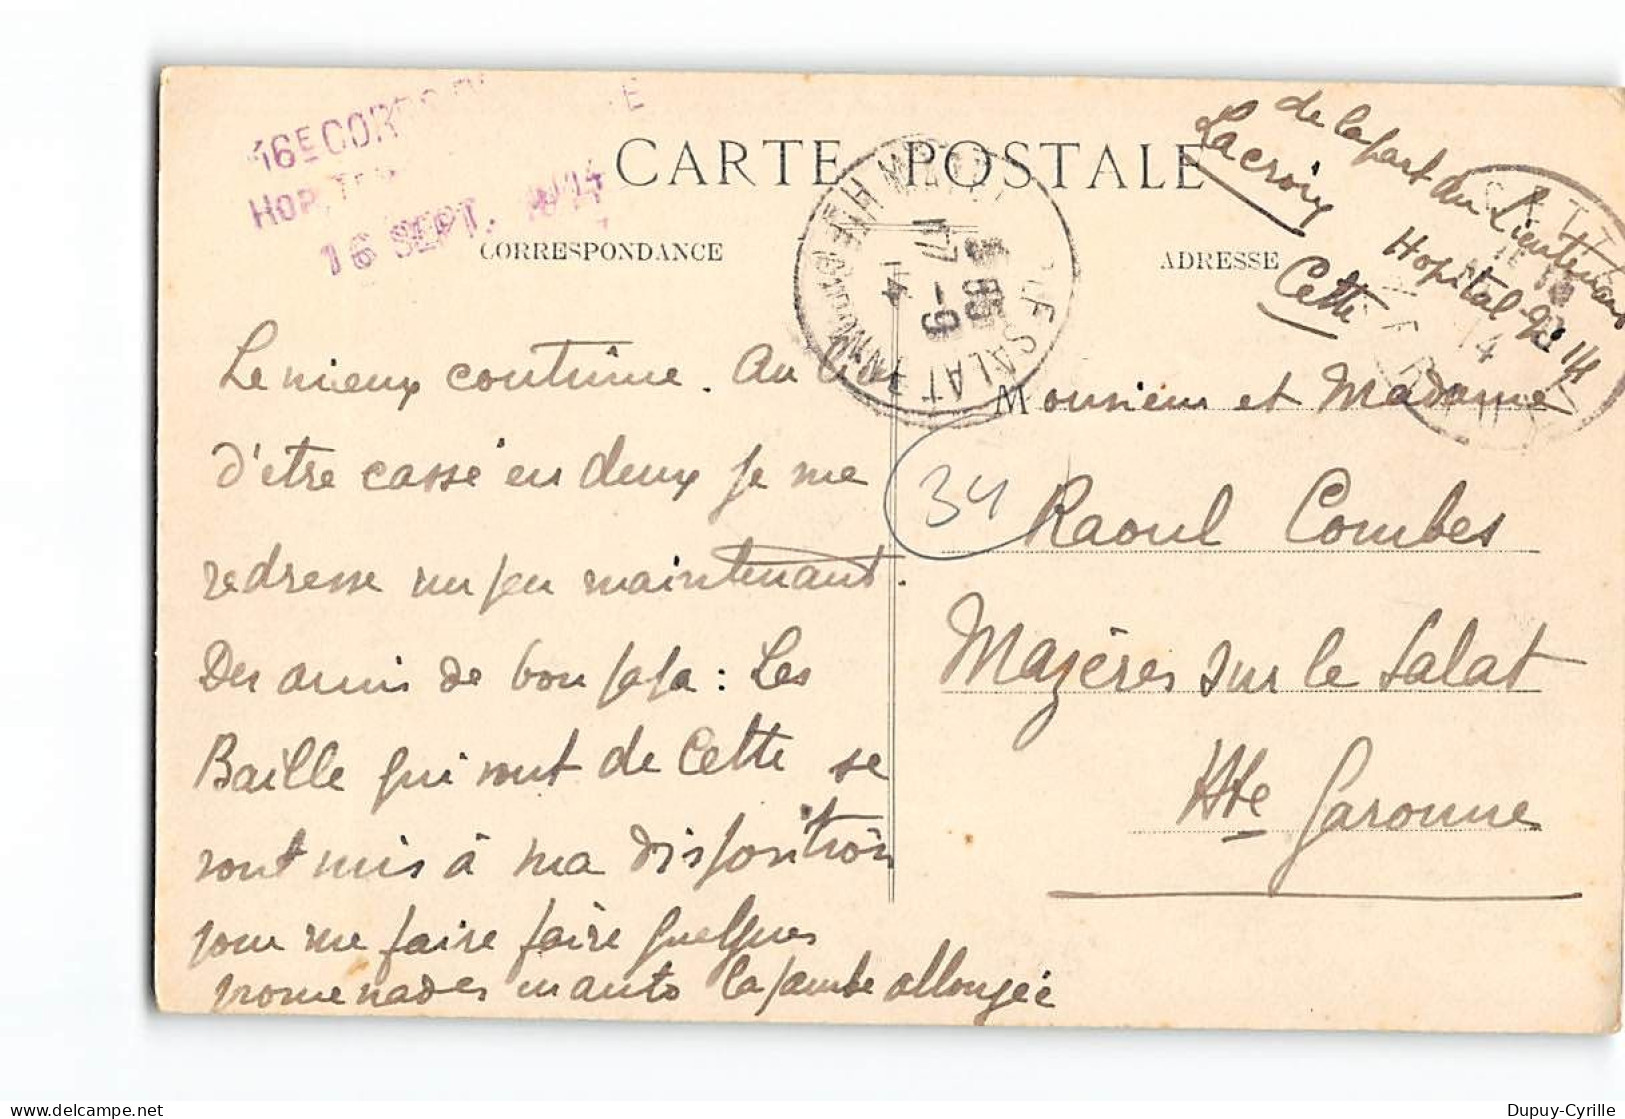 16E CORPS
HOP
16 SEPT. 1914
CARTE POSTALE
CORRESPONDANCE
ADRESSE
de la part du Lieutenant
Lacroix Hopital No 14
Cette
17 -9
14
SALAT
Le mieux continue. Au lieu
d'etre cassé en deux je me
redresse un peu maintenant.
Des amis de bon papa : Les
Baille qui sont de Cette se
sont mis à ma disposition
pour me faire faire quelques
promenades en auto la jambe allongée
Monsieur et Madame
34
Raoul Combes
Mazères sur le Salat
Hte Garonne
Dupuy-Cyrille